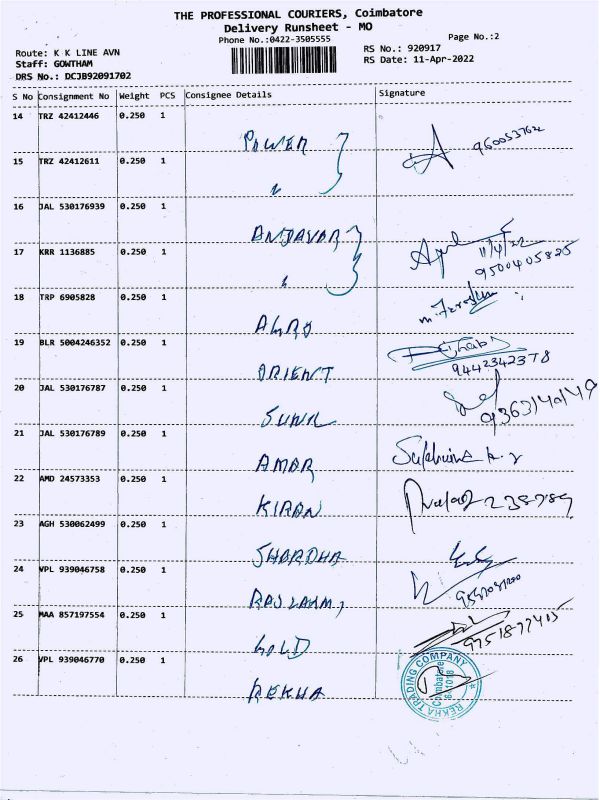 THE PROFESSIONAL COURIERS, Coimbatore
Delivery Runsheet - MO
Phone No.:0422-3505555
Page No.:2
Route: K K LINE AVN
RS No.: 920917
Staff: GOWTHAM
RS Date: 11-Apr-2022
DRS No.: DCJB92091702
S No Consignment No Weight PCS Consignee Details Signature
14 TRZ 42412446 0.250 1
POWER
15 TRZ 42412611 0.250 1
16 JAL 530176939 0.250 1
ANDAVAR
11/4/22
17 KRR 1136885 0.250 1
9500405825
18 TRP 6905828 0.250 1
AGRO
19 BLR 5004246352 0.250 1
ORIENT
9442342378
20 JAL 530176787 0.250 1
SUNIL
21 JAL 530176789 0.250 1
AMAR
22 AMD 24573353 0.250 1
KIRAN
23 AGH 530062499 0.250 1
SHARDHA
24 VPL 939046758 0.250 1
RAJLAXMI
25 MAA 857197554 0.250 1
GOLD
26 VPL 939046770 0.250 1
REKHA
REKHA TRADING COMPANY
Coimbatore